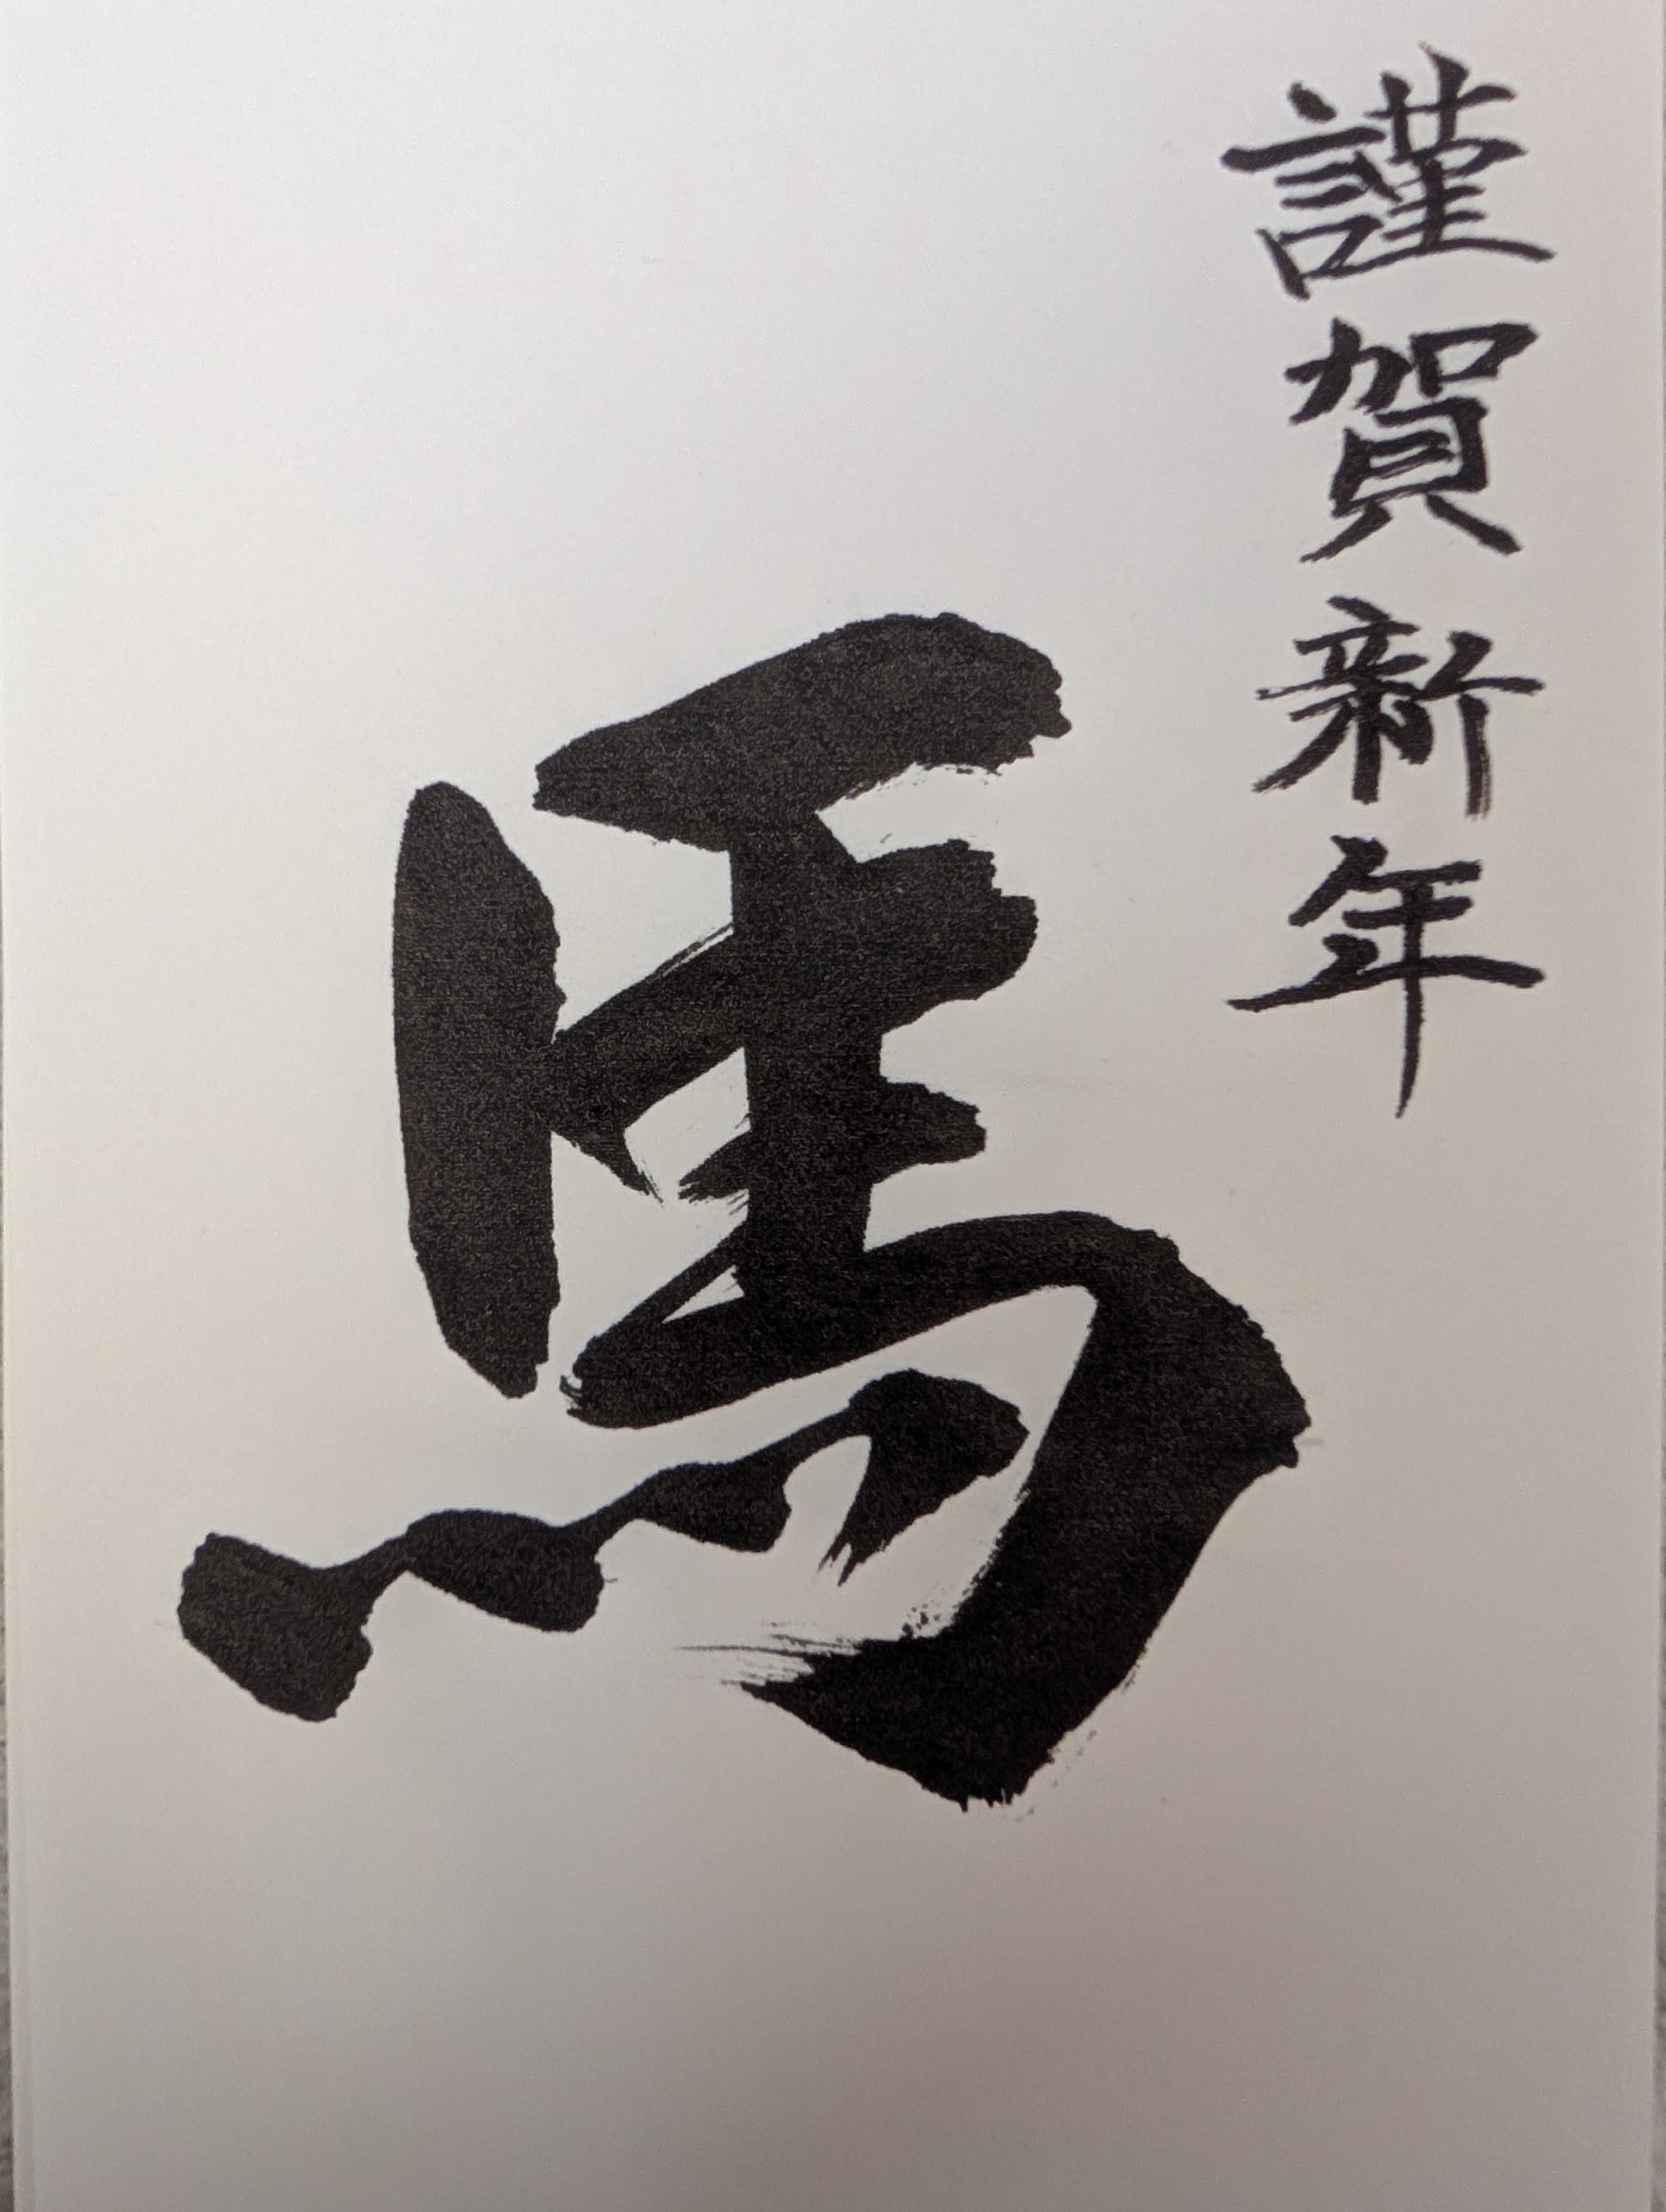 謹賀新年
馬